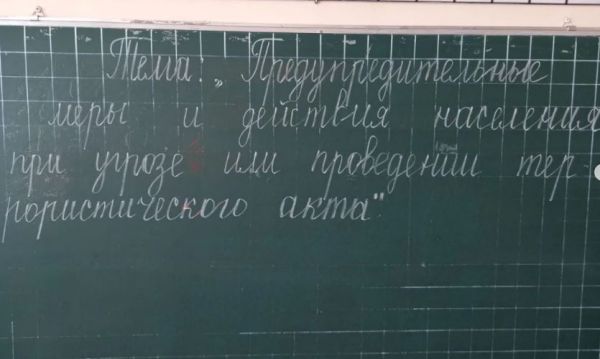 Тема: „Предупредительные
меры и действия населения
при угрозе или проведении тер
рористического акта"